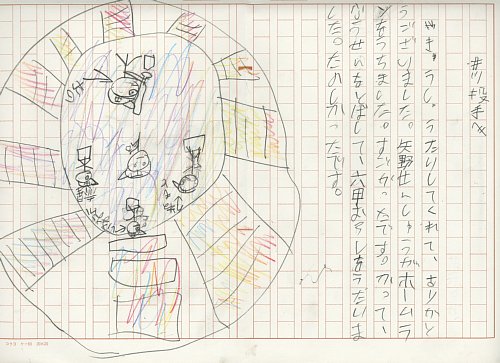 井川投手へ
やきゅうしょうたいしてくれて、ありがと
うございました。矢野せんしゅうがホームラ
ンをうちました。すごかったです。かって、
ふうせんをとばして、六甲おろしをうたいま
した。たのしかったです。